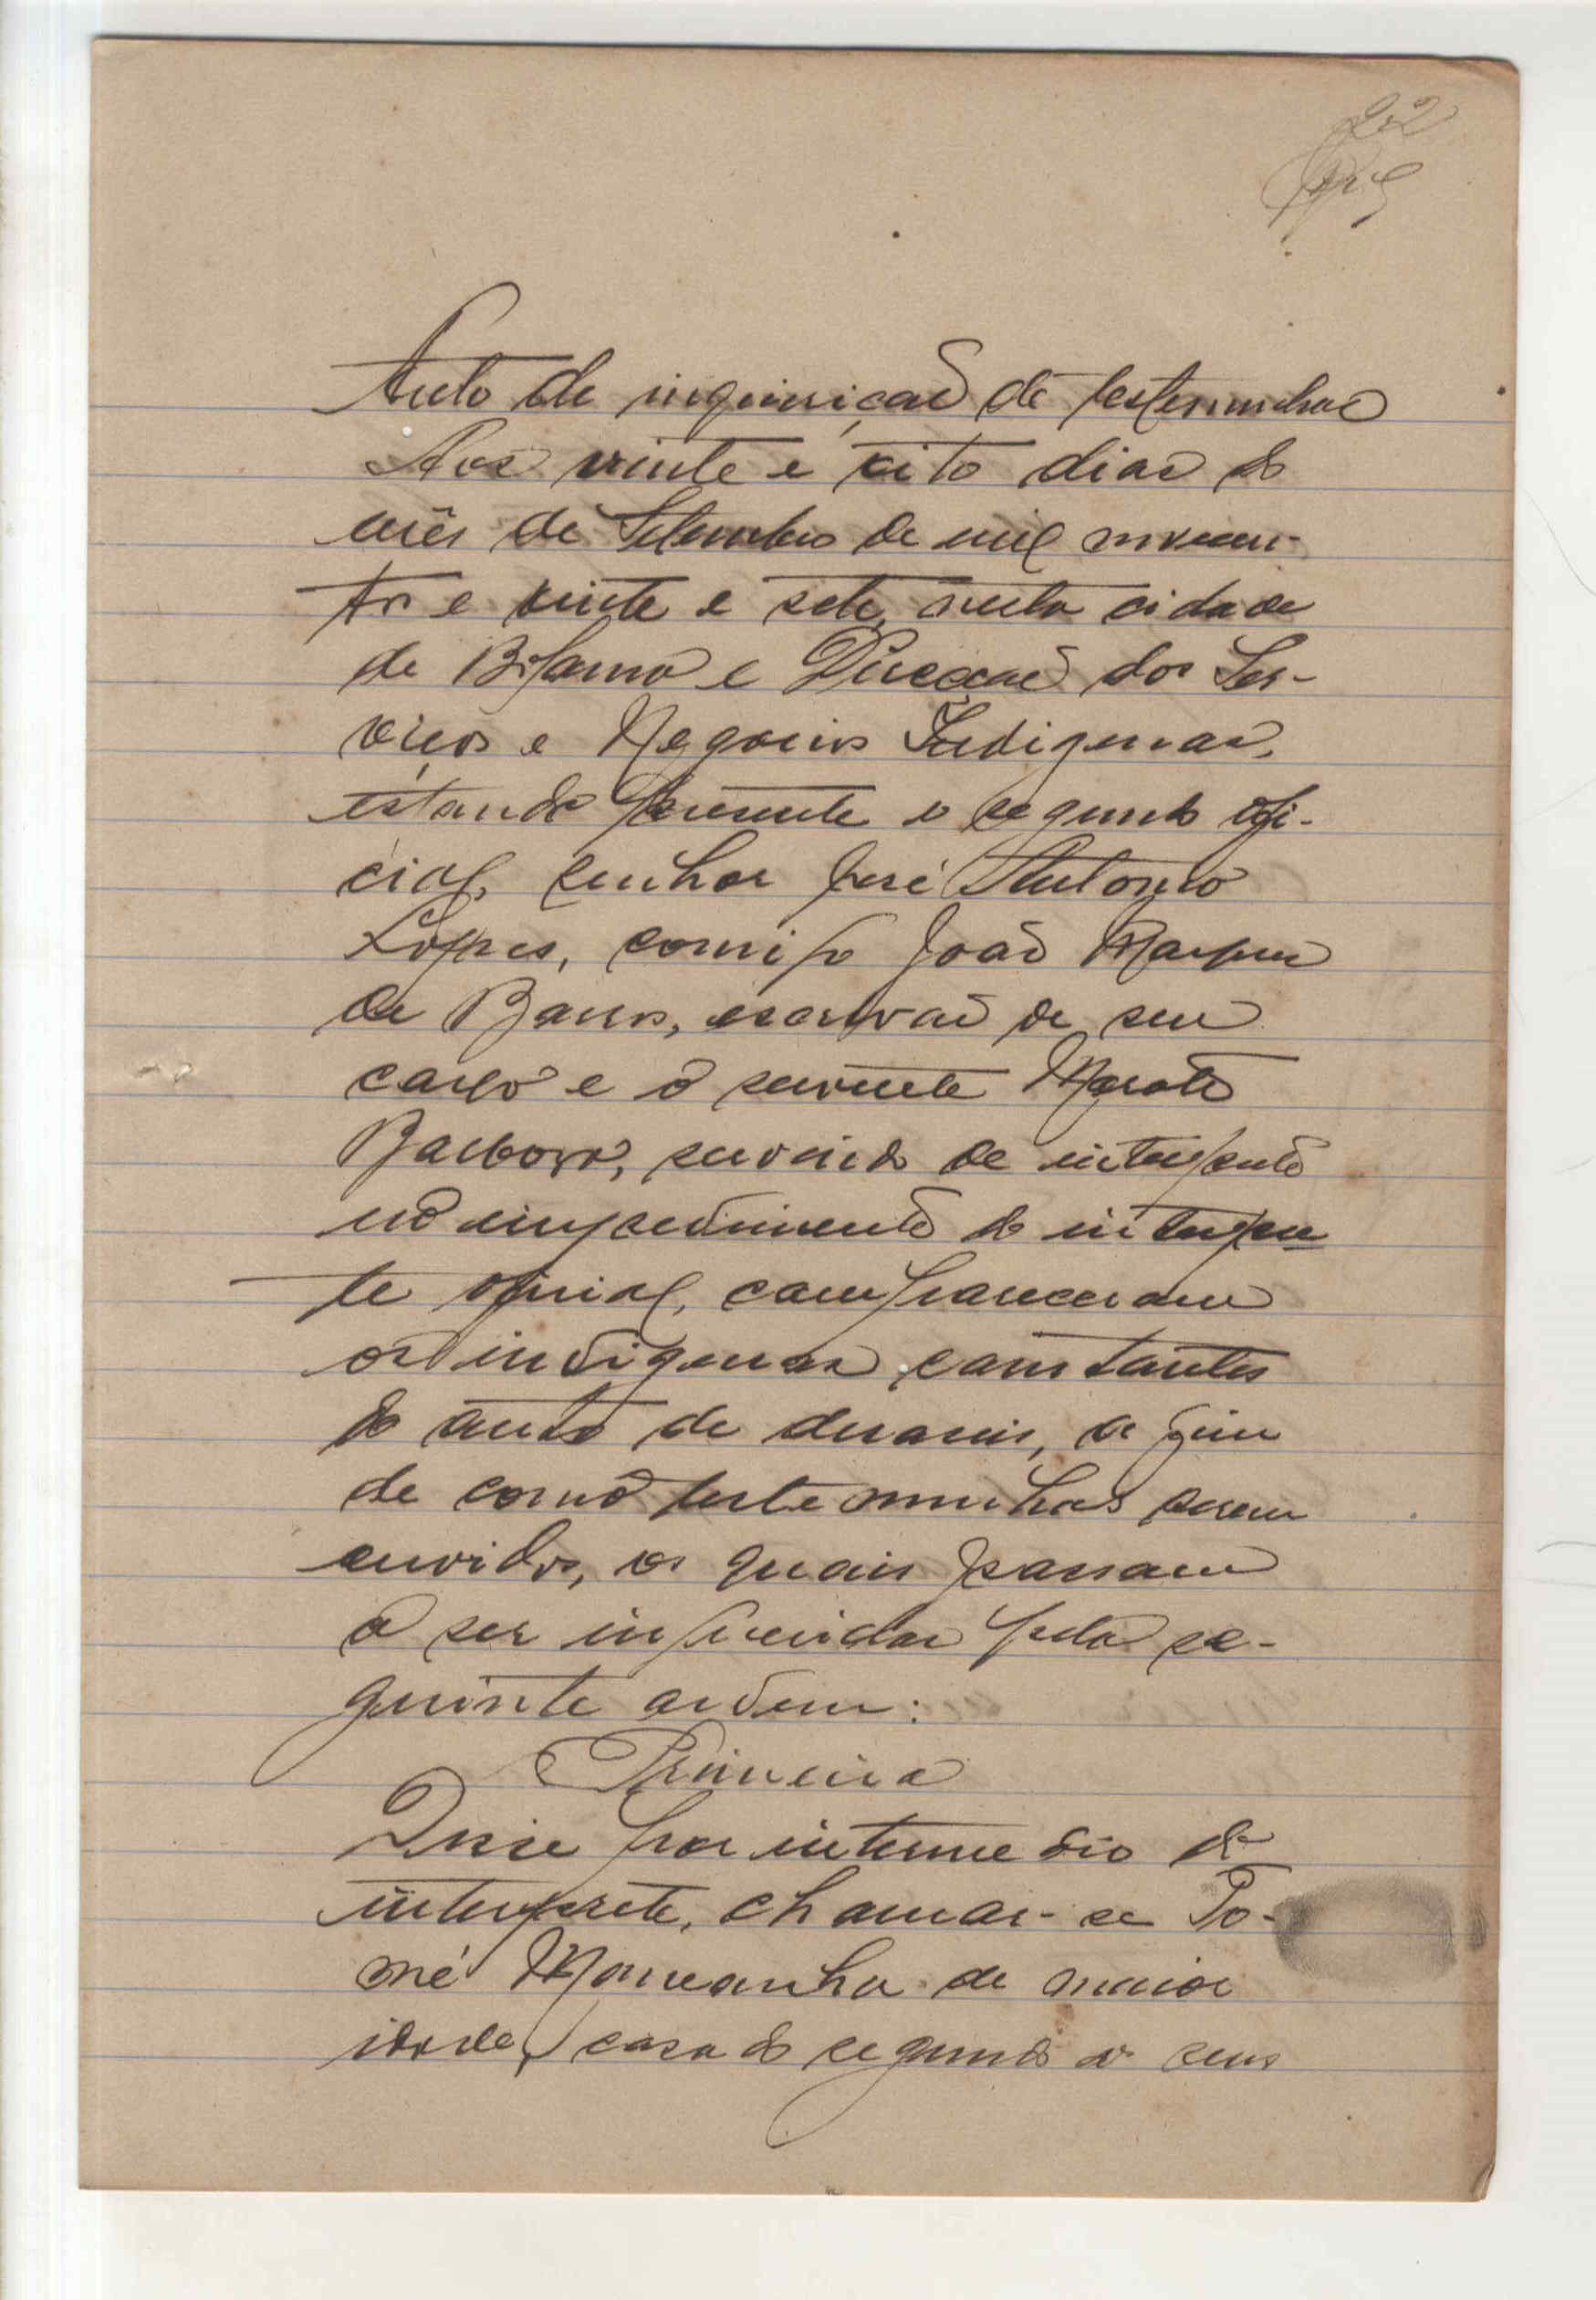 22
Auto de inquirição de testemunhas
Aos vinte e oito dias do
mês de Setembro de mil novecen-
tos e vinte e sete, nesta cidade
de Bolama e Direcção dos Ser-
viços e Negocios Indigenas,
estando presente o segundo ofi-
cial, senhor José Antonio
Lopes, comigo João Marques
de Barros, escrivão de seu
cargo e o servente
Barbosa, servindo de interprete
no impedimento do interpre-
te oficial, compareceram
os indigenas constantes
do auto de declarações, a fim
de como testemunhas serem
ouvidos, os quais passam
a ser inqueridos pela se-
guinte ordem:
Primeira
Disse por intermedio do
interprete, chamar-se To-
mé de maior
idade, casado segundo os seus